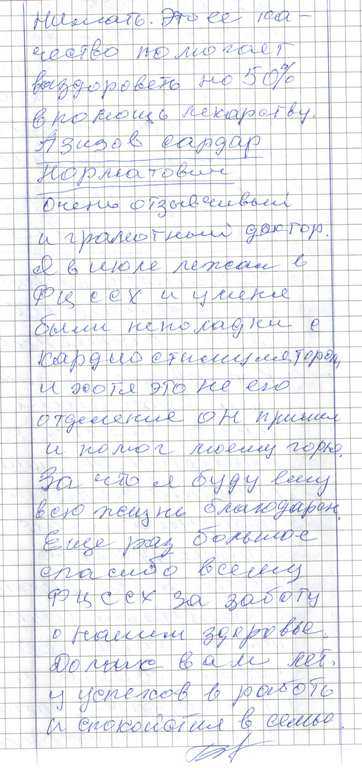 нимать. Это ее ка-
чество помогает
выздороветь на 50%
в помощь лекарству.
Азизов Сардар
Норматович
очень отзывчивый
и грамотный доктор.
Я в июле лежал в
ФЦССХ и у меня
были неполадки с
кардиостимулятором,
и хотя это не его
отделение он пришел
и помог моему горю.
За что я буду ему
всю жизнь благодарен.
Еще раз большое
спасибо всему
ФЦССХ за заботу
о нашем здоровье.
Долгих вам лет.
и успехов в работе
и спокойствия в семье.